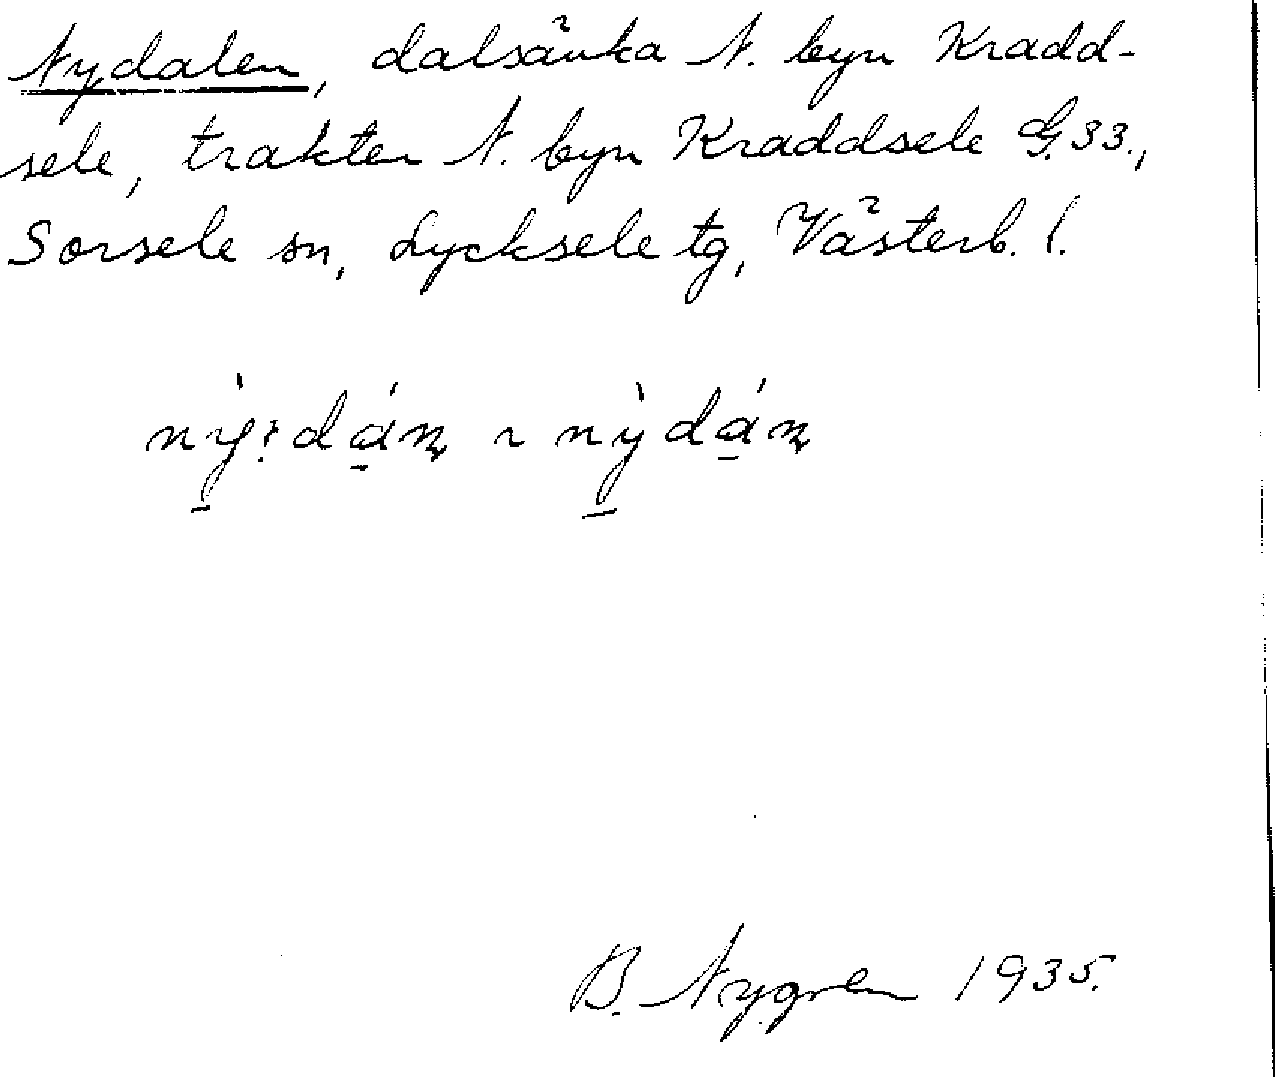 Nydalen, dalsänka N. byn Kradd-
sele, trakten N. byn Kraddsele G.33.,
Sorsele sn, Lycksele tg, Västerb. l.
B. Nygren 1935.